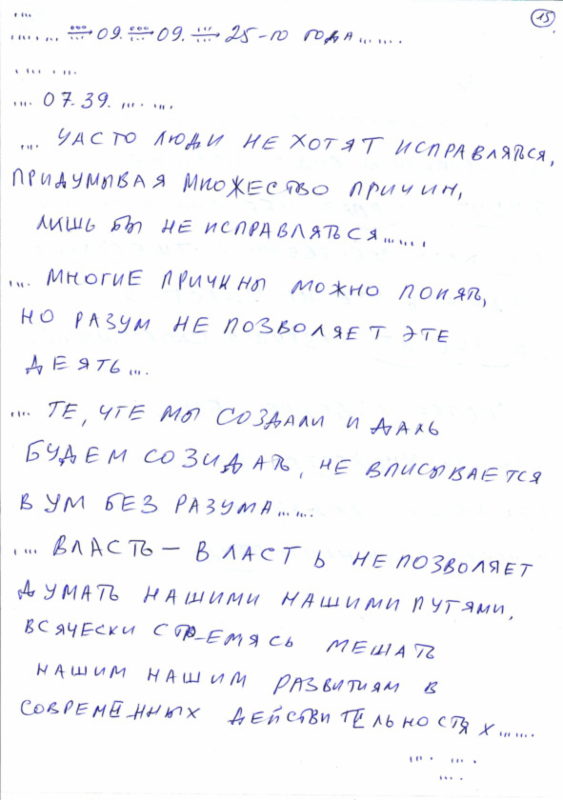 15
....
...... ⇌ 09. ⇌ 09. ⇌ 25-го года.......
.... ....
.... 07.39. .... ....
.... часто люди не хотят исправляться,
придумывая множество причин,
лишь бы не исправляться.......
.... многие причины можно понять,
но разум не позволяет эте
деять....
.... те, чте мы создали и даль
будем созидать, не вписывается
в ум без разума......
.... власть — власть не позволяет
думать нашими нашими путями,
всячески стремясь мешать
нашим нашим развитиям в
современных действительностях.......
.... ....
....